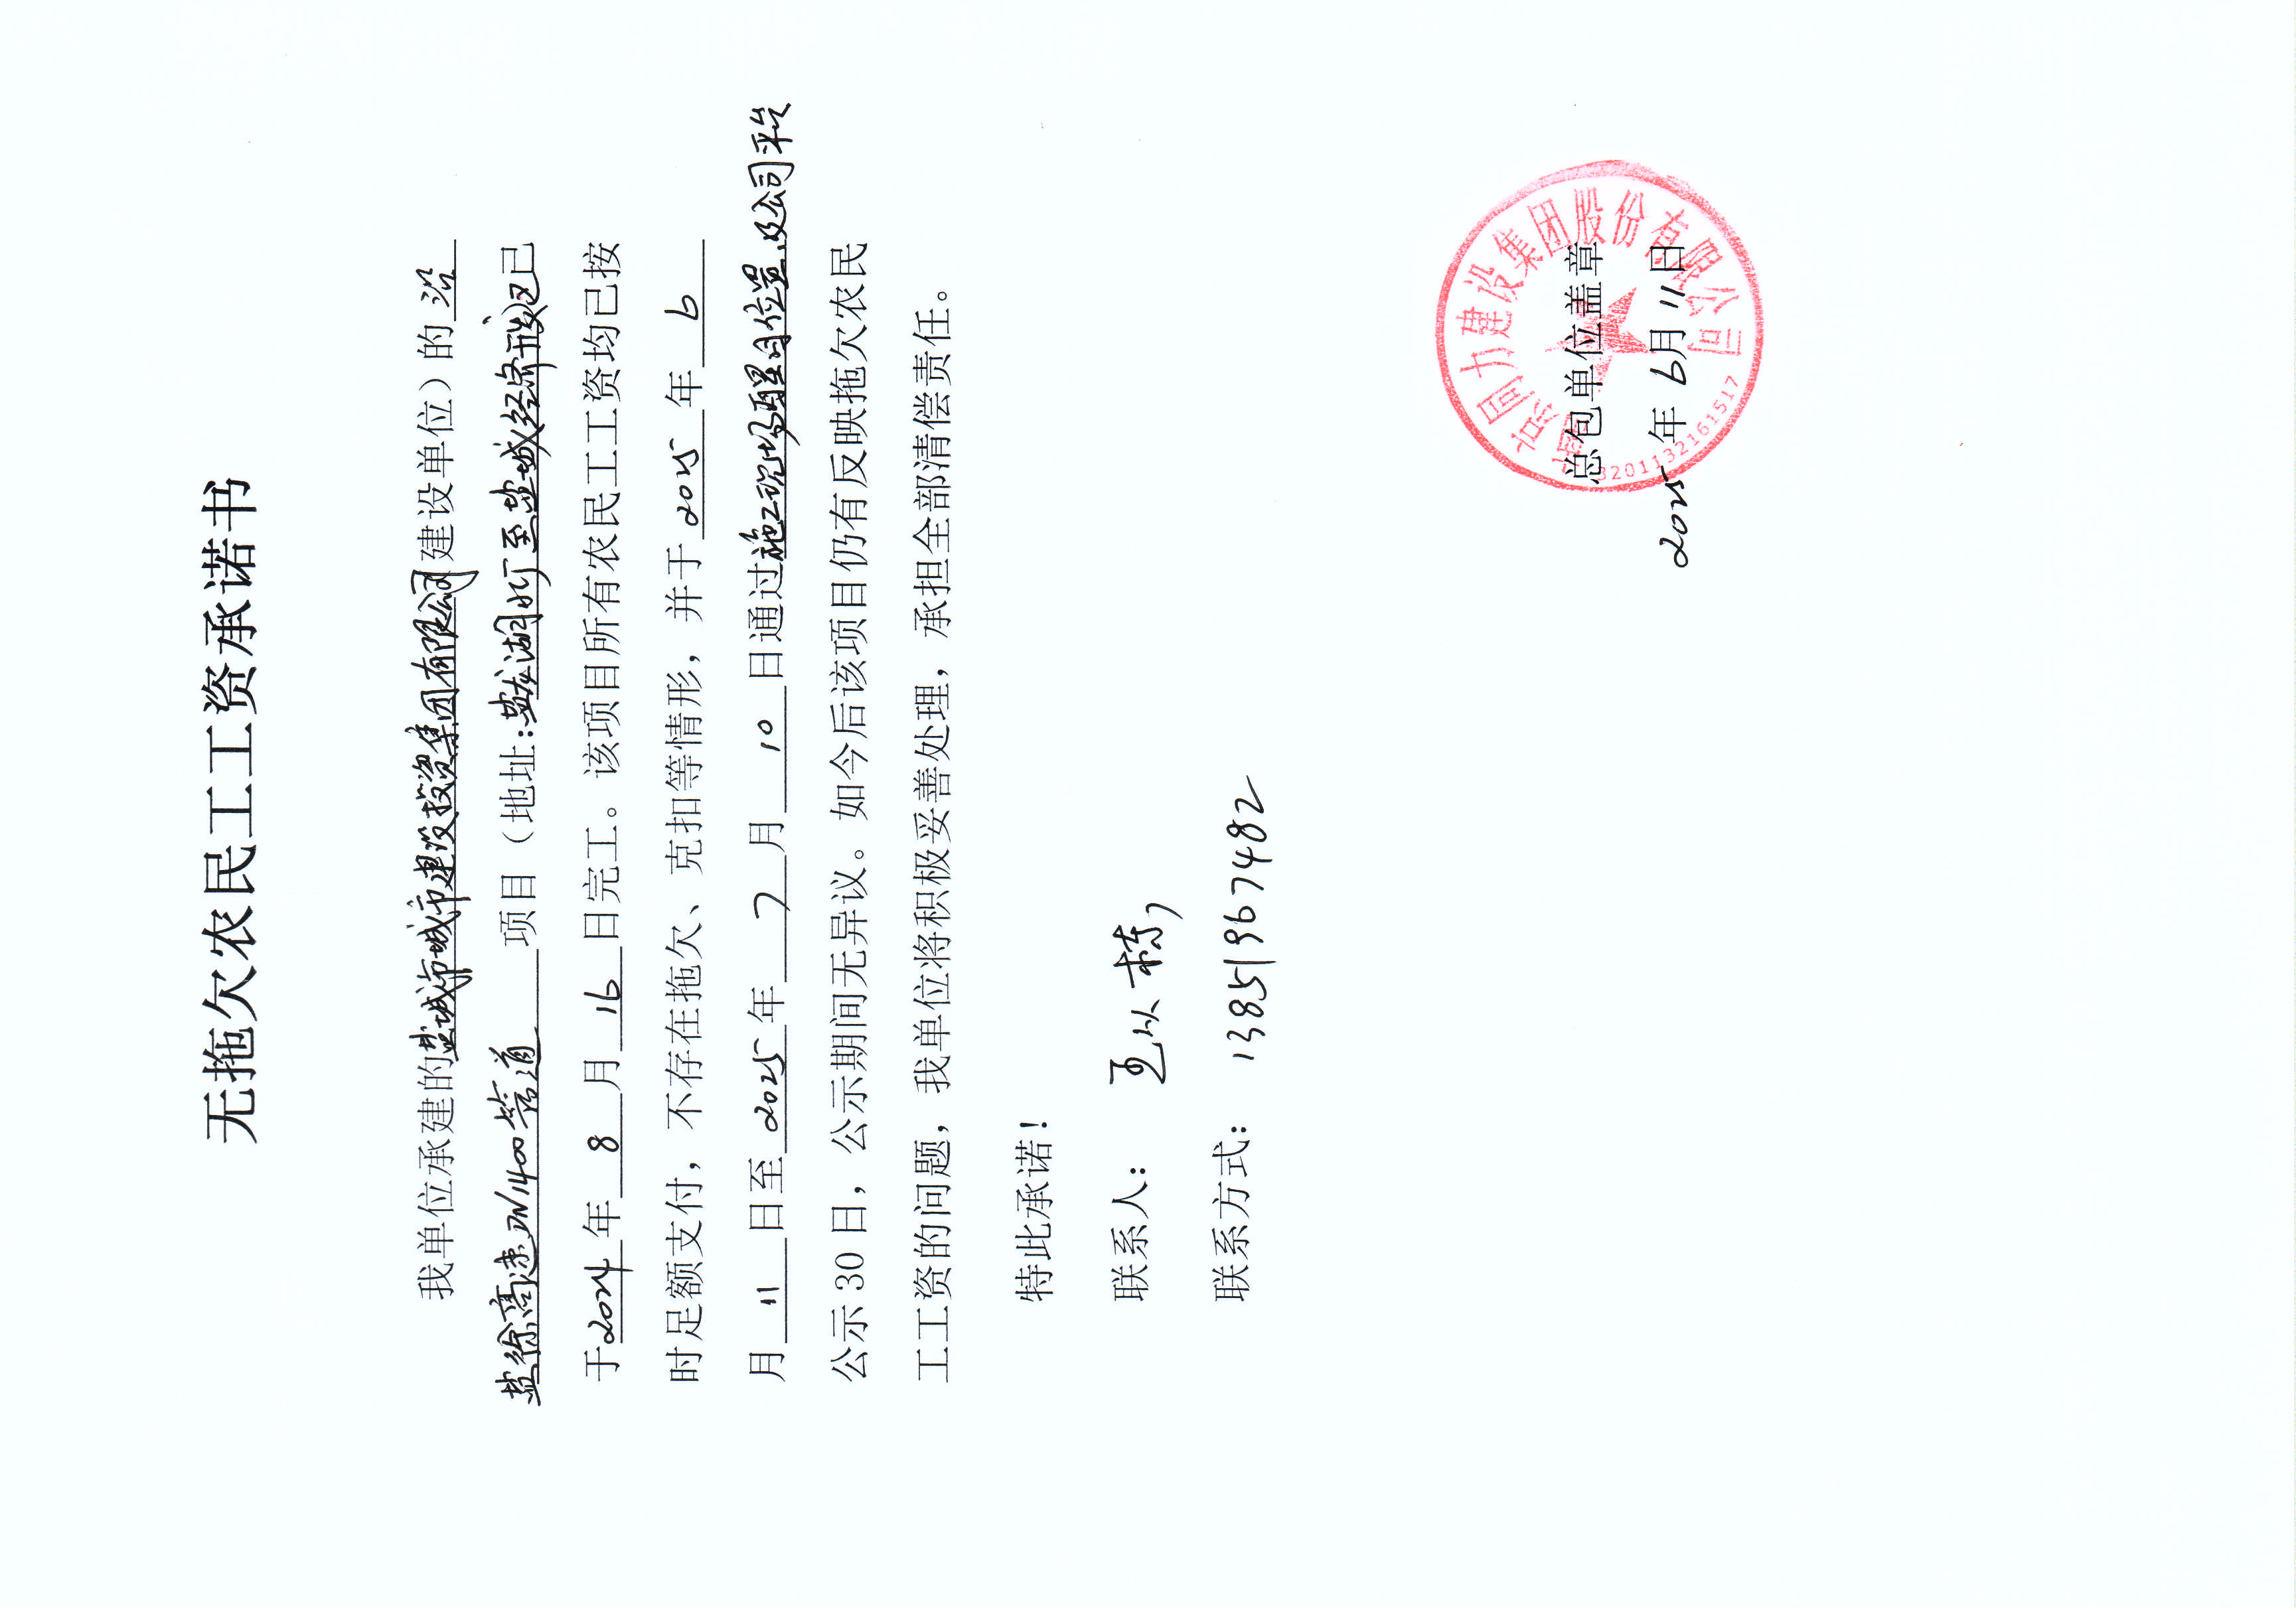 无拖欠农民工工资承诺书
我单位承建的盐城市城市建设投资集团有限公司（建设单位）的沿
盐徐高速DN1400管道 项目（地址：盐龙湖水厂至盐城经济开发区）已
于2024年8月16日完工。该项目所有农民工工资均已按
时足额支付，不存在拖欠、克扣等情形，并于2025年6
月11日至2025年7月10日通过施工现场明显位置及公司平台
公示30日，公示期间无异议。如今后该项目仍有反映拖欠农民
工工资的问题，我单位将积极妥善处理，承担全部清偿责任。
特此承诺！
联系人：
联系方式：13851967482
总包单位盖章
2025年6月11日
南京同力建设集团股份有限公司
3201132161517